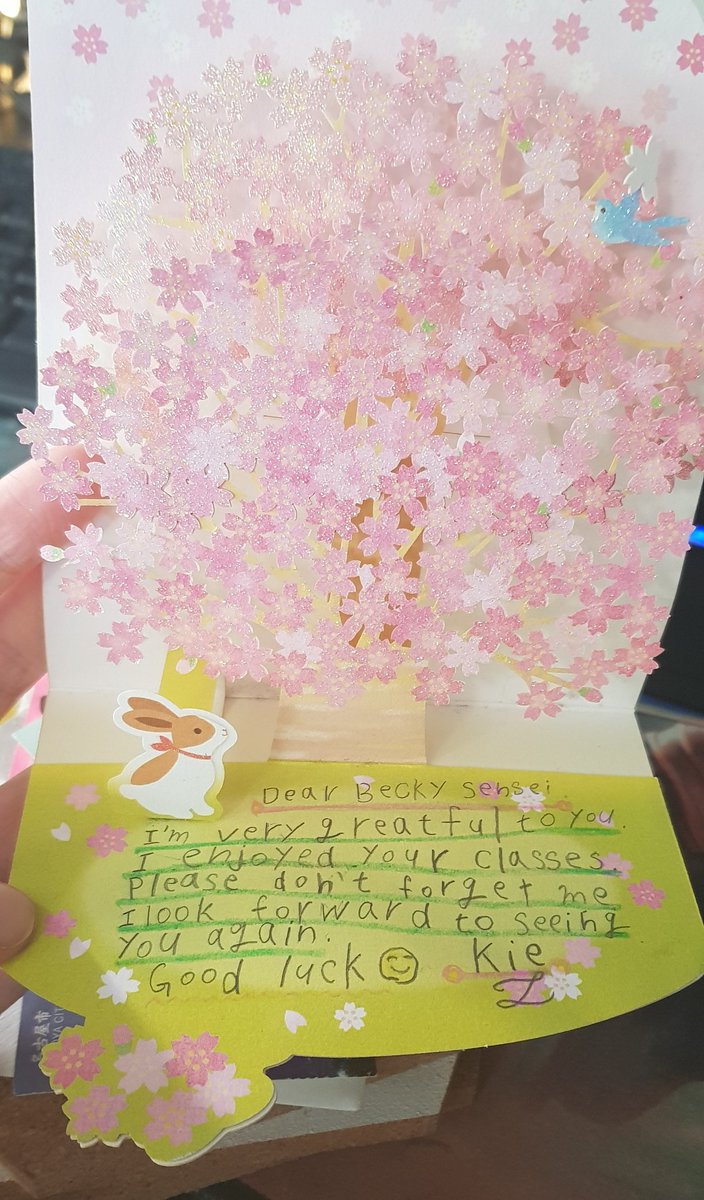 Dear Becky sensei.
I'm very greatful to you.
I enjoyed your classes.
Please don't forget me
I look forward to seeing
you again.
Good luck ☺ Kie
名古屋市